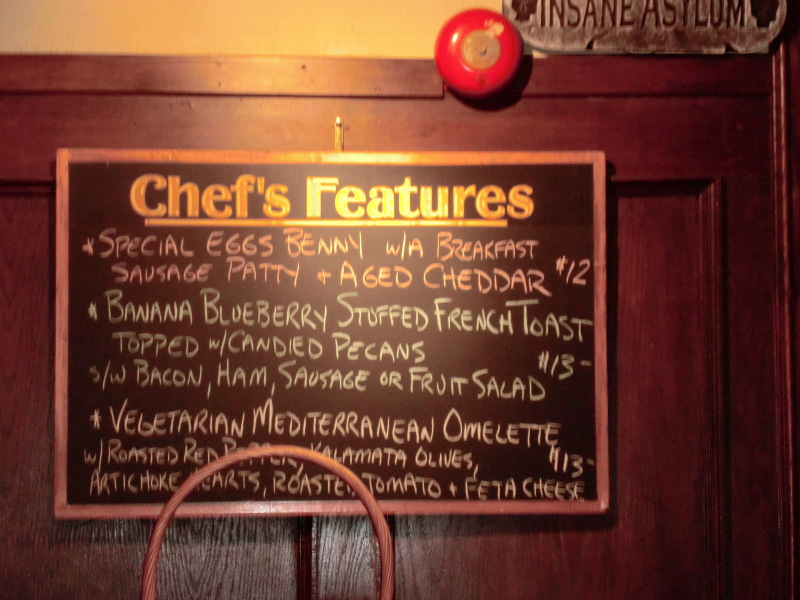 INSANE ASYLUM
Chef's Features
* SPECIAL EGGS BENNY W/A BREAKFAST
SAUSAGE PATTY + AGED CHEDDAR $12
* BANANA BLUEBERRY STUFFED FRENCH TOAST
TOPPED W/CANDIED PECANS
$13-
S/W BACON, HAM, SAUSAGE OR FRUIT SALAD
* VEGETARIAN MEDITERRANEAN OMELETTE
W/ ROASTED RED PEPPER, KALAMATA OLIVES, $13-
ARTICHOKE HEARTS, ROASTED TOMATO + FETA CHEESE